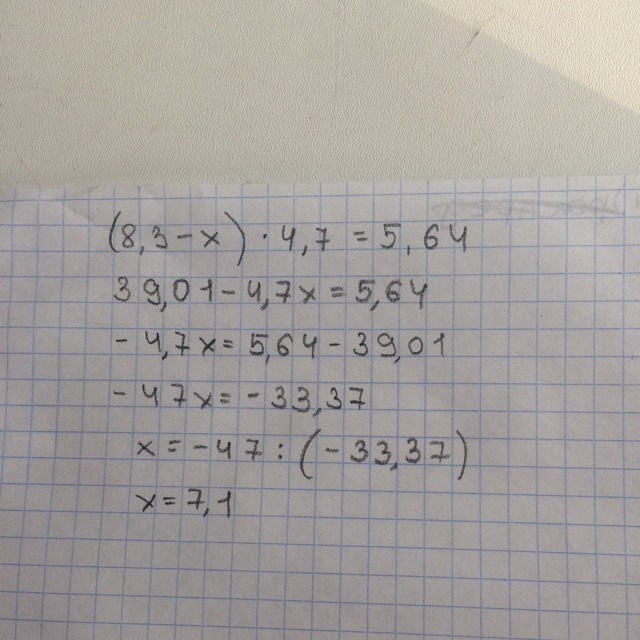 (8,3-x)·4,7=5,64
39,01-4,7x=5,64
-4,7x=5,64-39,01
-47x=-33,37
x=-47:(-33,37)
x=7,1